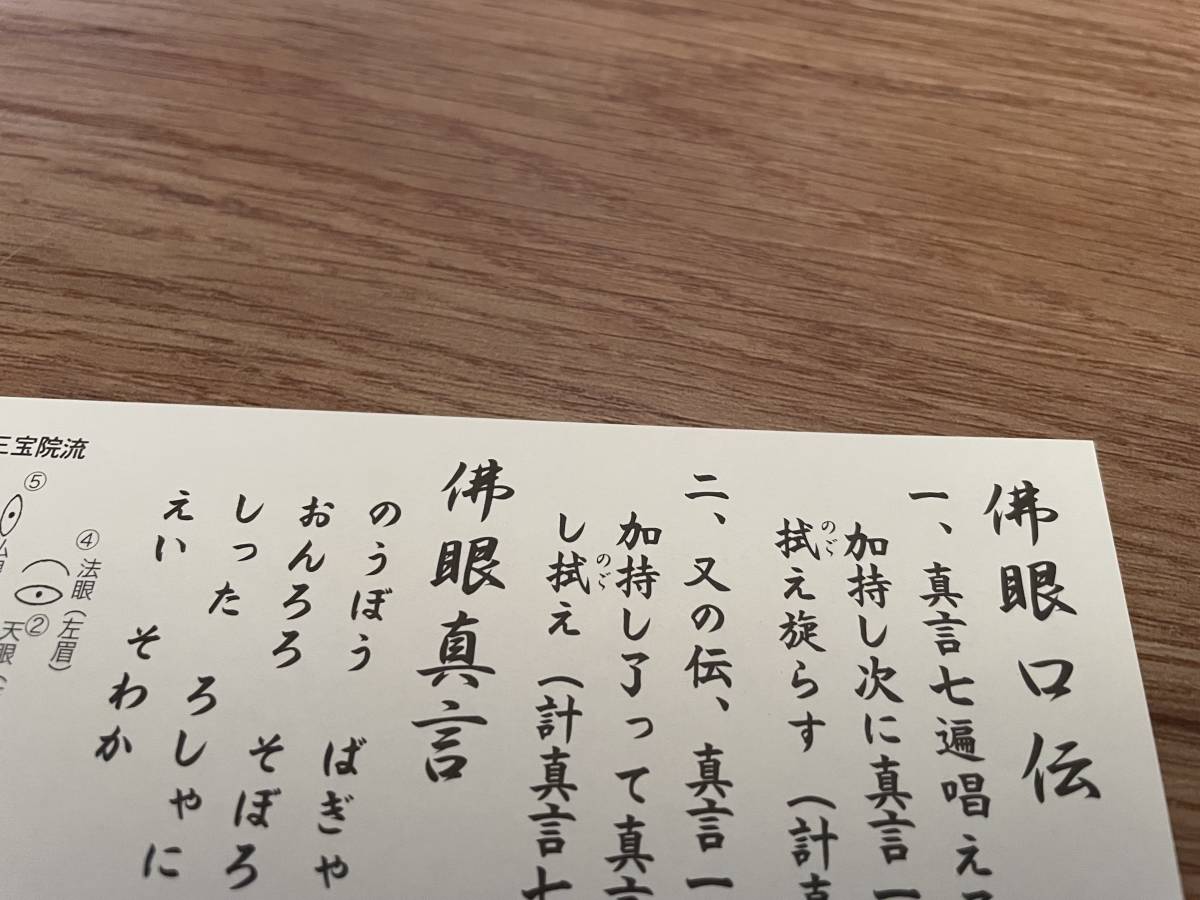 佛眼口伝
一、真言七遍唱え
加持し次に真言一
拭え旋らす（計真
のご
二、又の伝、真言一
加持し了って真言
し拭え（計真言七
のご
佛眼真言
のうぼう ばぎゃ
おんろろ そぼろ
しった ろしゃに
えい そわか
三宝院流
⑤
④法眼（左眉）
②天眼